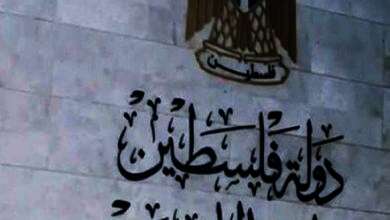 فلسطين
دولة فلسطين